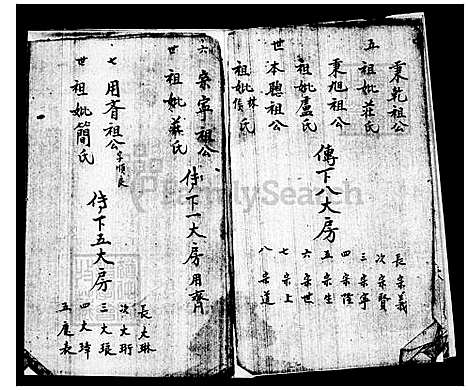 秉乾祖公
五 祖妣莊氏
秉旭祖公
祖妣盧氏
世 本聰祖公
祖妣林氏
侯氏
傳下八大房
長 宗義
次 宗賢
三 宗寧
四 宗陞
五 宗生
六 宗世
七 宗上
八 宗道
六 宗寧祖公
世 祖妣蘇氏
傳下一大房用齊
七 用齊祖公字順良
世 祖妣簡氏
傳下五大房
長 大琳
次 大珩
三 大琅
四 大瑋
五 庭表
FamilySearch